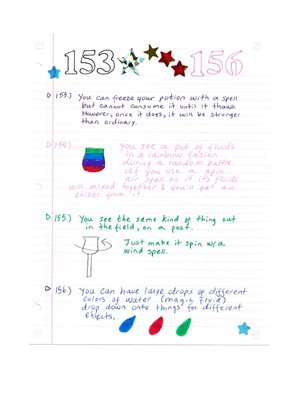 153 156
153.) You can freeze your potion with a spell
but cannot consume it until it thaws.
However, once it does, it will be stronger
than ordinary.
154.) You see a pot of fluids
in a rainbow fasion
during a random battle.
If you use a spin
air spell on it its fluids
will mixed together & you'll get an
elixer from it.
155.) You see the same kind of thing out
in the field, on a post.
Just make it spin w/a
wind spell.
156.) You can have large drops of different
colors of water (magic fluid)
drop down onto things for different
effects.